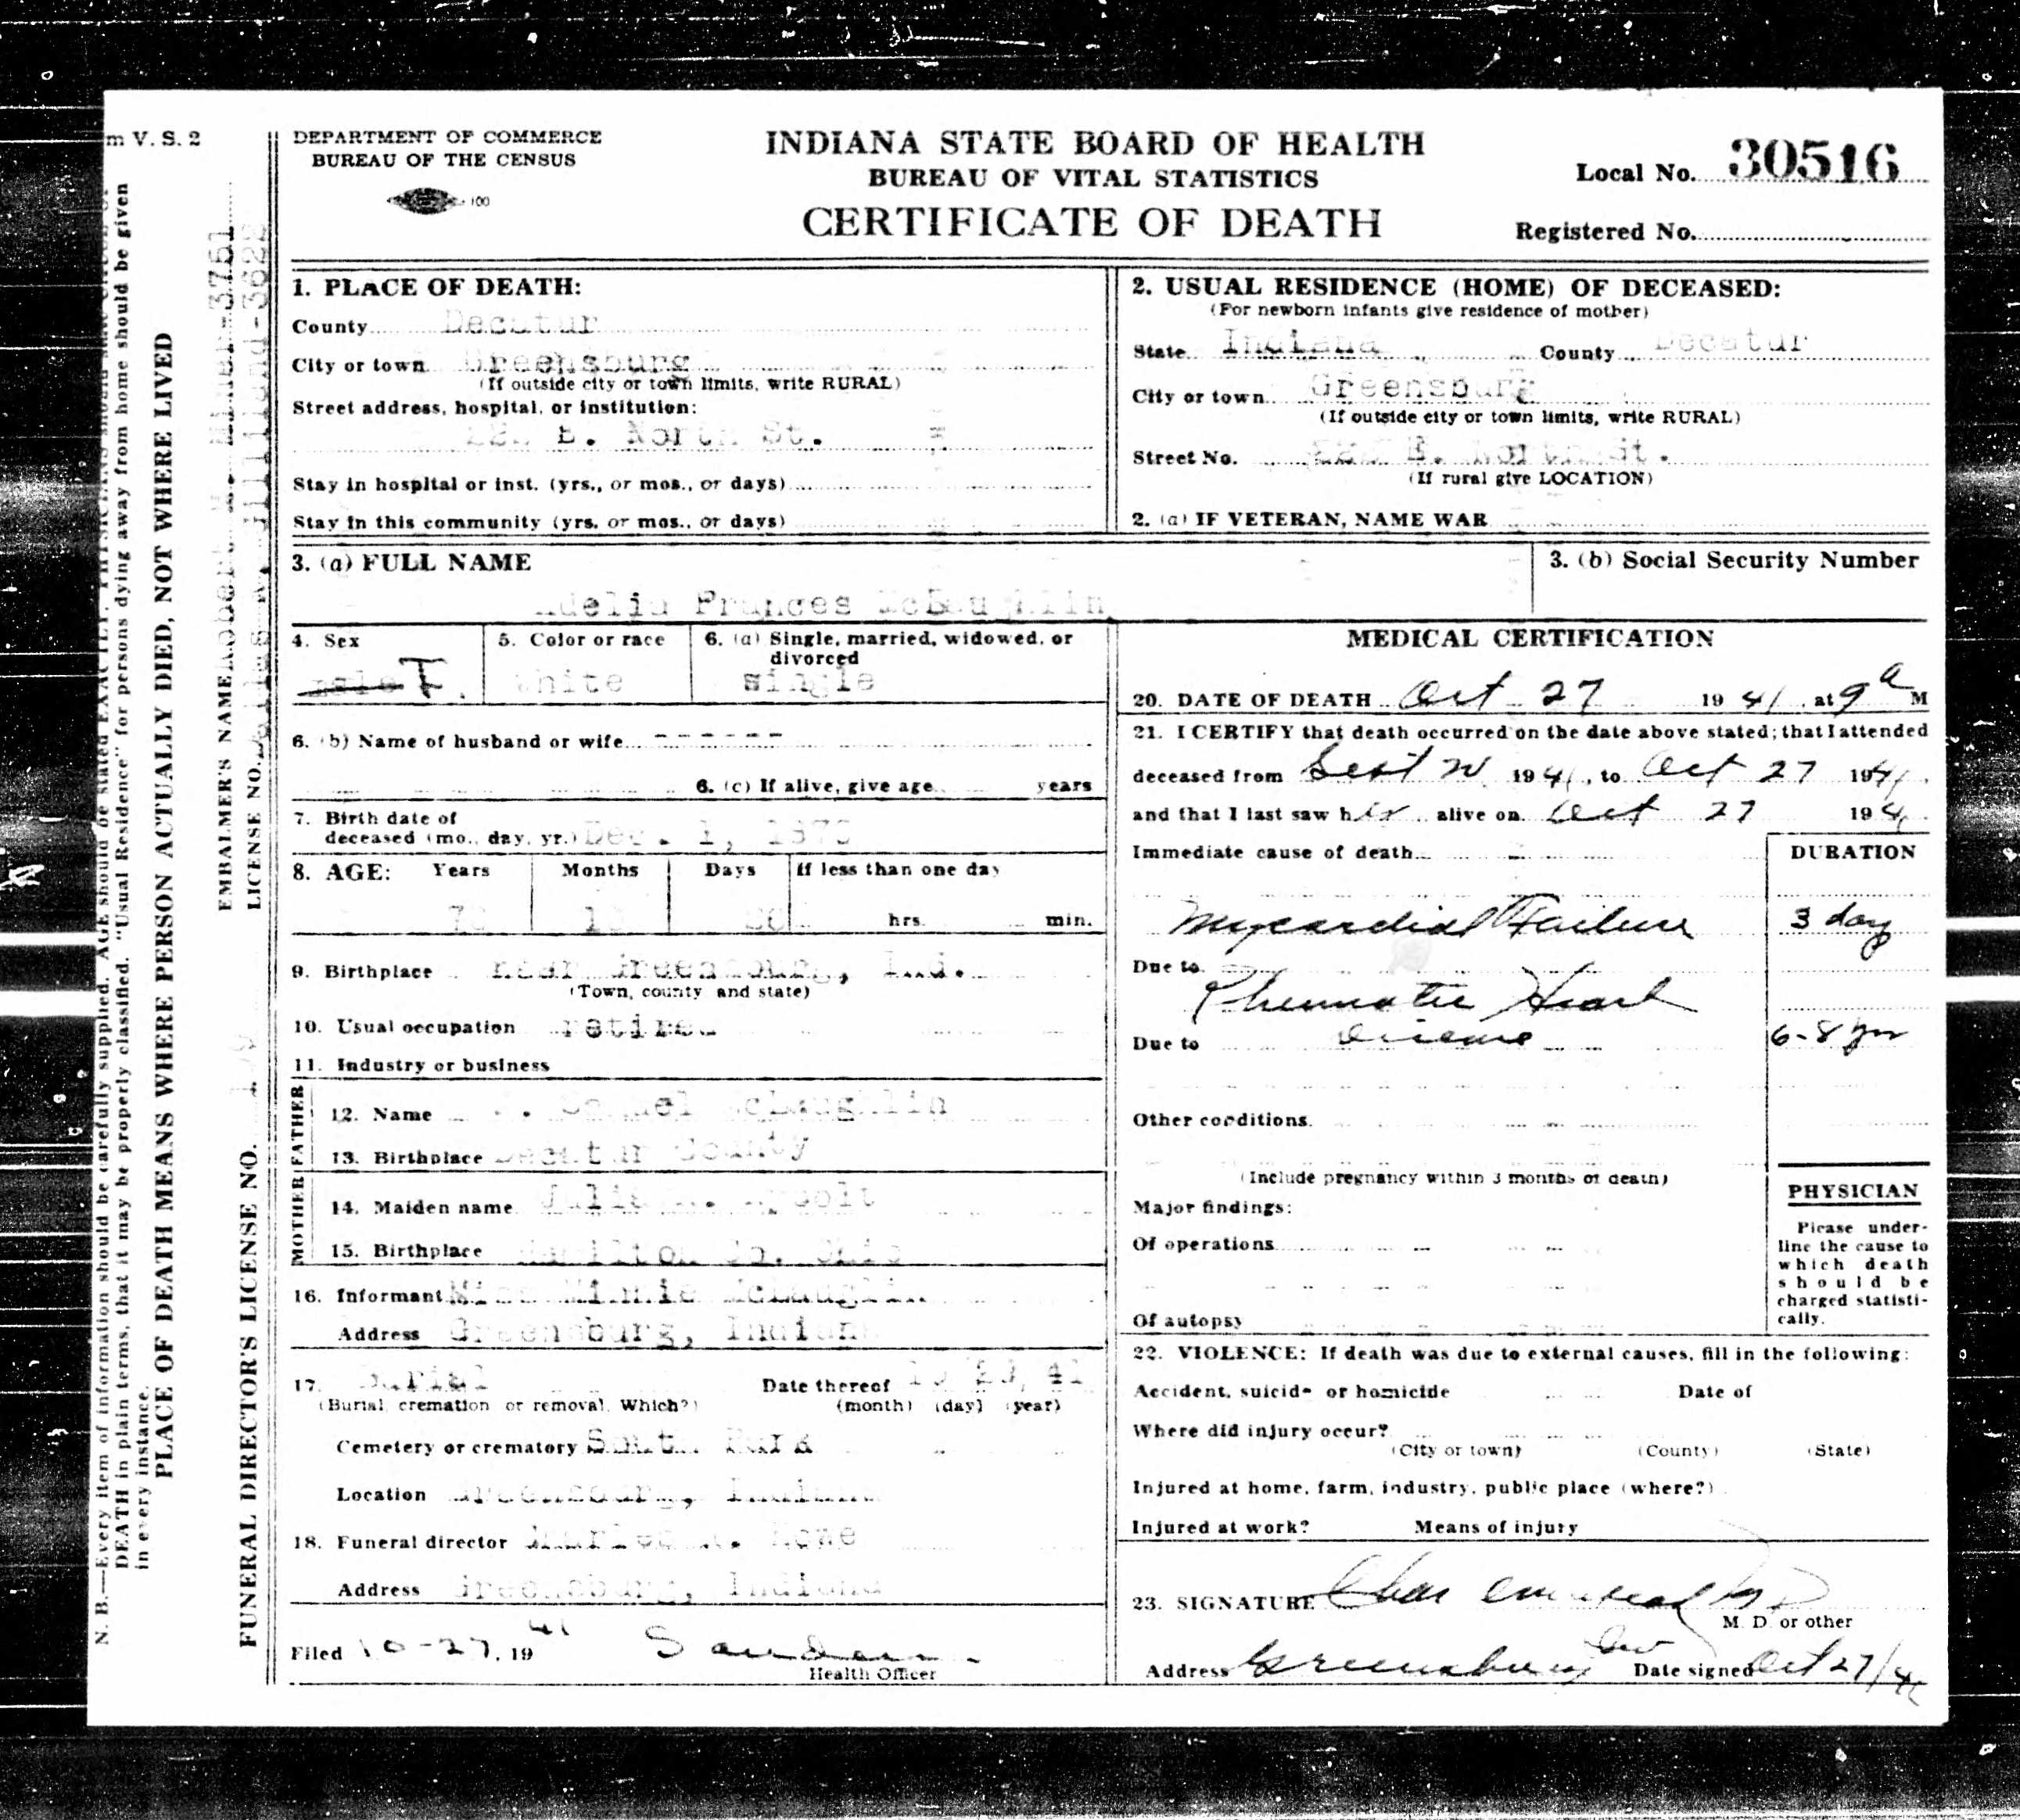 m V. S. 2
DEPARTMENT OF COMMERCE
BUREAU OF THE CENSUS
100
INDIANA STATE BOARD OF HEALTH
BUREAU OF VITAL STATISTICS
CERTIFICATE OF DEATH
Local No. 30516
Registered No.
N. B.—Every item of information should be carefully supplied. AGE should be stated EXACTLY. PHYSICIANS should state
DEATH in plain terms, that it may be properly classified. "Usual Residence" for persons dying away from home should be given
in every instance.
PLACE OF DEATH MEANS WHERE PERSON ACTUALLY DIED, NOT WHERE LIVED
EMBALMER'S NAME Robert 3751
LICENSE NO. Gilliland-3622
FUNERAL DIRECTOR'S LICENSE NO.
1. PLACE OF DEATH:
County Decatur
City or town Greensburg
(If outside city or town limits, write RURAL)
Street address, hospital, or institution:
E. North St.
Stay in hospital or inst. (yrs., or mos., or days)
Stay in this community (yrs. or mos., or days)
2. USUAL RESIDENCE (HOME) OF DECEASED:
(For newborn infants give residence of mother)
State Indiana County Decatur
City or town Greensburg
(If outside city or town limits, write RURAL)
Street No. E. North St.
(If rural give LOCATION)
2. (a) IF VETERAN, NAME WAR
3. (a) FULL NAME
Adelia Frances McLaughlin
3. (b) Social Security Number
4. Sex
male F.
5. Color or race
White
6. (a) Single, married, widowed, or
divorced
single
6. (b) Name of husband or wife ------
6. (c) If alive, give age years
7. Birth date of
deceased (mo., day, yr.) Dec. 1,
8. AGE: Years Months Days If less than one day
hrs. min.
9. Birthplace near Greensburg, Ind.
(Town, county and state)
10. Usual occupation retired
11. Industry or business
FATHER
12. Name Samuel McLaughlin
13. Birthplace Decatur County
MOTHER
14. Maiden name Julia
15. Birthplace Hamilton Co. Ohio
16. Informant Miss Minnie McLaughlin
Address Greensburg, Indiana
17. Burial Date thereof 41
(Burial, cremation or removal. Which?) (month) (day) (year)
Cemetery or crematory South Park
Location Greensburg, Indiana
18. Funeral director Charles Rowe
Address Greensburg, Indiana
Filed 10-27, 1941
Health Officer
MEDICAL CERTIFICATION
20. DATE OF DEATH Oct 27 1941, at 9 a M
21. I CERTIFY that death occurred on the date above stated; that I attended
deceased from Sept 1941, to Oct 27 1941.
and that I last saw her alive on Oct 27 194
Immediate cause of death
DURATION
Myocardial Failure 3 day
Due to
Rheumatic Heart
Due to Disease 6-8 yrs
Other conditions.
(Include pregnancy within 3 months of death)
Major findings:
Of operations
Of autopsy
PHYSICIAN
Please under-
line the cause to
which death
should be
charged statisti-
cally.
22. VIOLENCE: If death was due to external causes, fill in the following:
Accident, suicide or homicide Date of
Where did injury occur?
(City or town) (County) (State)
Injured at home, farm, industry, public place (where?)
Injured at work? Means of injury
23. SIGNATURE Chas
M. D. or other
Address Greensburg Ind Date signed Oct 27/41